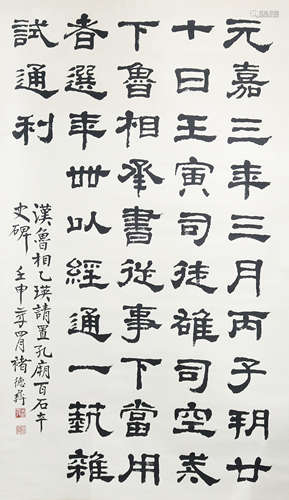 元嘉三年三月丙子朔廿
十日壬寅司徒雄司空戒
下魯相承書從事下當用
者選年卌以經通一埶雜
試通利
漢魯相乙瑛請置孔廟百石卒
史碑 壬申年四月褚德彝